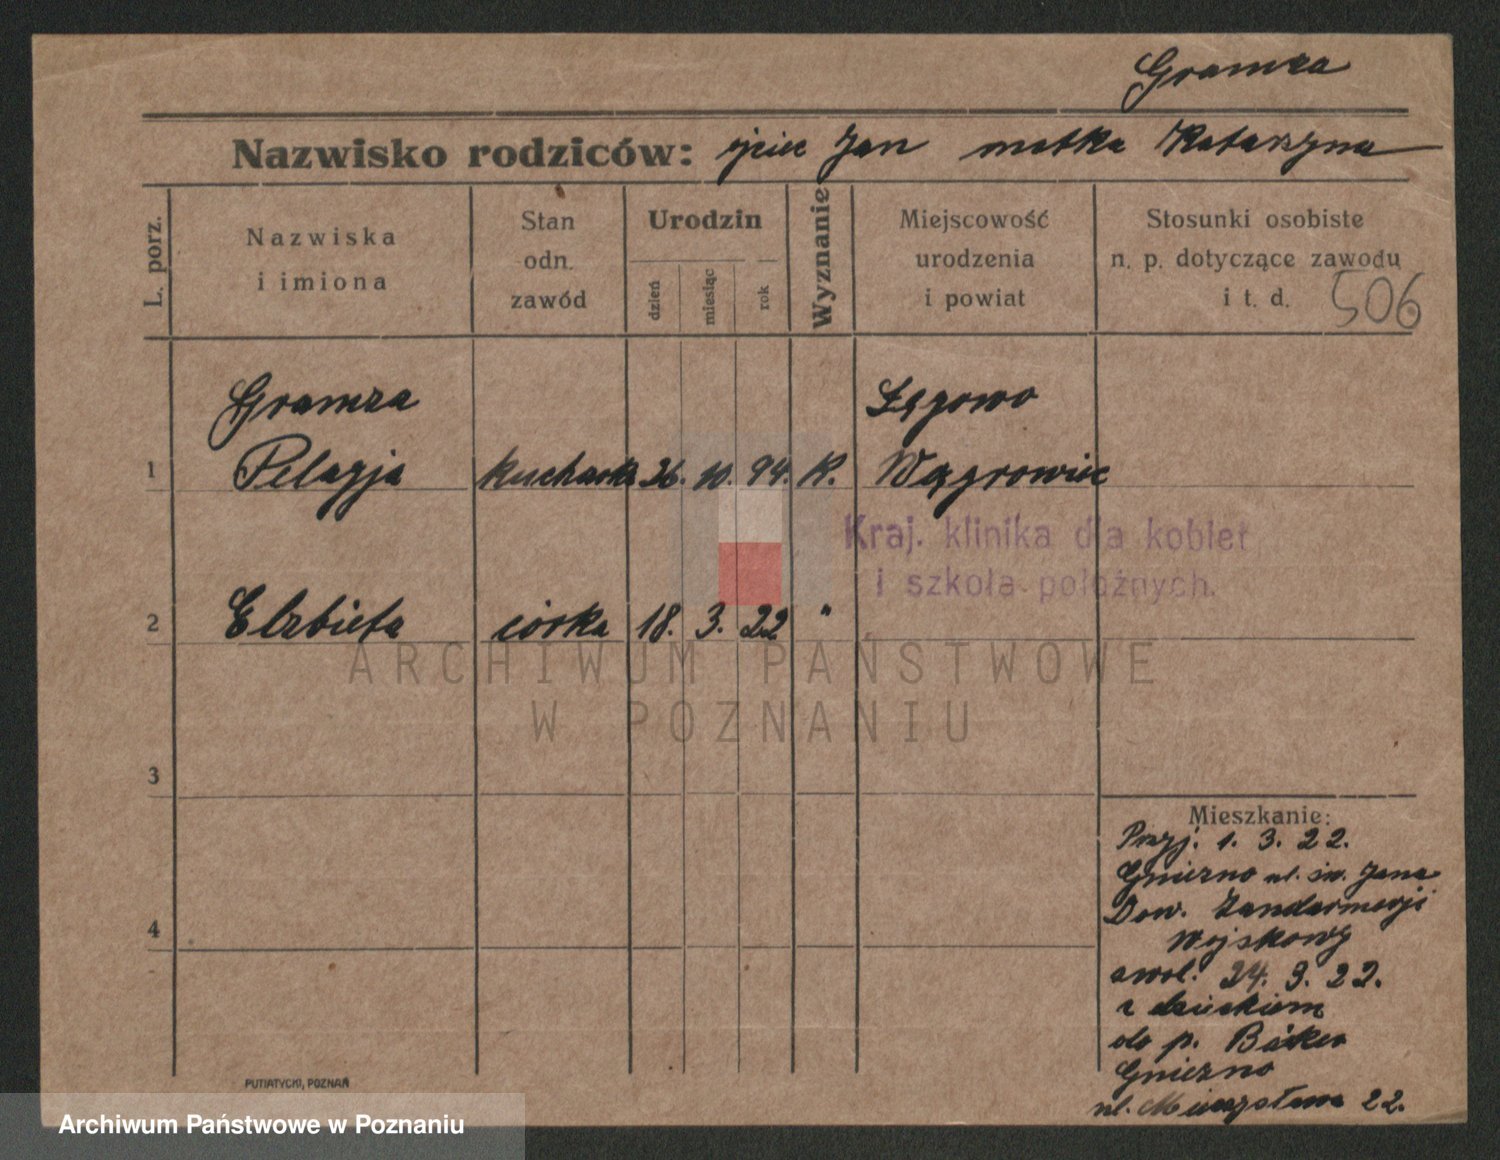 Gramza
Nazwisko rodziców: ojciec Jan matka Katarzyna
L. porz.
Nazwiska
i imiona
Stan
odn.
zawód
Urodzin
dzień
miesiąc
rok
Wyznanie
Miejscowość
urodzenia
i powiat
Stosunki osobiste
n. p. dotyczące zawodu
i t. d.
506
Gramza Łęgowo
1 Pelagja kucharka 26. 10. 94. K. Wągrowiec
Kraj. klinika dla kobiet
i szkoła położnych.
2 Elzbieta córka 18. 3. 22 "
ARCHIWUM PAŃSTWOWE
W POZNANIU
3
4
Mieszkanie:
Przyj. 1. 3. 22.
Gniezno ul. św. Jana
Dow. Żandarmerji
Wojskowy
zwol. 24. 3. 22.
z dzieckiem
do p.
Gniezno
ul. Mieczysława 22.
PUTIATYCKI, POZNAŃ
Archiwum Państwowe w Poznaniu